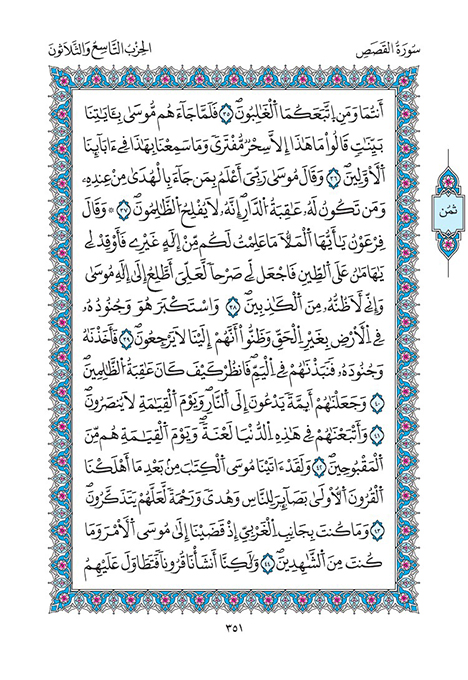 سُورَةُ القَصَصِ
الحِزْبُ التَّاسِعُ وَالثَّلَاثُونَ
أَنتُمَا وَمَنِ اِتَّبَعَكُمَا اَ۬لْغَٰلِبُونَۖ ٣٥ فَلَمَّا جَآءَهُم مُّوس۪ىٰ بِـَٔايَٰتِنَا
بَيِّنَٰتٖ قَالُواْ مَا هَٰذَآ إِلَّا سِحْرٞ مُّفْتَرىٗ وَمَا سَمِعْنَا بِهَٰذَا فِےٓ ءَابَآئِنَا
اَ۬لْأَوَّلِينَۖ ٣٦ وَقَالَ مُوس۪ىٰ رَبِّيَ أَعْلَمُ بِمَن جَآءَ بِالْهُد۪ىٰ مِنْ عِندِهِۦ
وَمَن تَكُونُ لَهُۥ عَٰقِبَةُ اُ۬لدّ۪ارِۖ إِنَّهُۥ لَا يُفْلِحُ اُ۬لظَّٰلِمُونَۖ ٣٧ ۞ وَقَالَ
فِرْعَوْنُ يَٰٓأَيُّهَا اَ۬لْمَلَأُ مَا عَلِمْتُ لَكُم مِّنِ اِلَٰهٍ غَيْرِے فَأَوْقِدْ لِے
يَٰهَٰمَٰنُ عَلَى اَ۬لطِّينِ فَاجْعَل لِّے صَرْحاٗ لَّعَلِّيَ أَطَّلِعُ إِلَىٰٓ إِلَٰهِ مُوس۪ىٰ
وَإِنِّے لَأَظُنُّهُۥ مِنَ اَ۬لْكَٰذِبِينَۖ ٣٨ وَاسْتَكْبَرَ هُوَ وَجُنُودُهُۥ
فِے اِ۬لْأَرْضِ بِغَيْرِ اِ۬لْحَقِّ وَظَنُّوٓاْ أَنَّهُمْ إِلَيْنَا لَا يَرْجِعُونَۖ ٣٩ فَأَخَذْنَٰهُ
وَجُنُودَهُۥ فَنَبَذْنَٰهُمْ فِے اِ۬لْيَمِّۖ فَانظُرْ كَيْفَ كَانَ عَٰقِبَةُ اُ۬لظَّٰلِمِينَۖ
٤٠ وَجَعَلْنَٰهُمْ أَئِمَّةٗ يَدْعُونَ إِلَى اَ۬لنّ۪ارِۖ وَيَوْمَ اَ۬لْقِيَٰمَةِ لَا يُنصَرُونَۖ
٤١ وَأَتْبَعْنَٰهُمْ فِے هَٰذِهِ اِ۬لدُّنْي۪ا لَعْنَةٗۖ وَيَوْمَ اَ۬لْقِيَٰمَةِ هُم مِّنَ
اَ۬لْمَقْبُوحِينَۖ ٤٢ وَلَقَدَ اٰتَيْنَا مُوسَى اَ۬لْكِتَٰبَ مِنۢ بَعْدِ مَآ أَهْلَكْنَا
اَ۬لْقُرُونَ اَ۬لْأُول۪ىٰ بَصَآئِرَ لِلنَّاسِ وَهُدىٗ وَرَحْمَةٗ لَّعَلَّهُمْ يَتَذَكَّرُونَۖ
٤٣ وَمَا كُنتَ بِجَانِبِ اِ۬لْغَرْبِيِّ إِذْ قَضَيْنَآ إِلَىٰ مُوسَى اَ۬لْأَمْرَ وَمَا
كُنتَ مِنَ اَ۬لشَّٰهِدِينَۖ ٤٤ وَلَٰكِنَّآ أَنشَأْنَا قُرُوناٗ فَتَطَاوَلَ عَلَيْهِمُ
ثُمُن
٣٥١